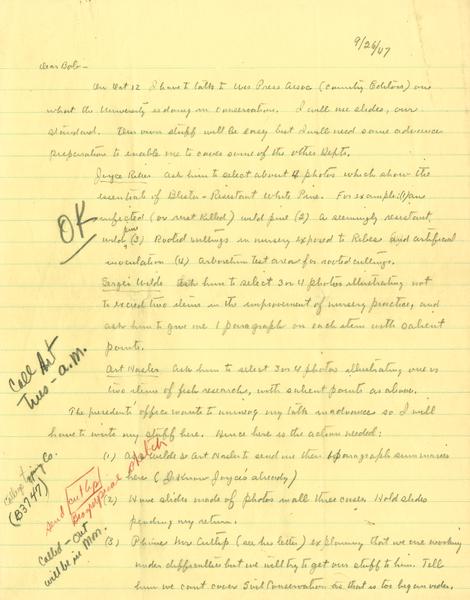 9/26/47
Dear Bob -
On Oct 12 I have to talk to Wis Press Assoc (Country Editors) on
what the University is doing in conservation. I will use slides, our
standard. Our own stuff will be easy but I will need some advance
preparation to enable me to cover some of the other Depts.
Joyce Riker Ask him to select about 4 photos which show the
essentials of Blister-Resistant White Pine. For example: (1) an
infected (or rust killed) wild pine (2) A seemingly resistant
wild pine (3) Rooted cuttings in nursery exposed to Ribes and artificial
inoculation (4) Arboretum test area for rooted cuttings.
OK
Sergei Wilde Ask him to select 3 or 4 photos illustrating not
to exceed two items in the improvement of nursery practice, and
ask him to give me 1 paragraph on each item with salient
points.
Call Art
Tues - a.m.
Art Hasler Ask him to select 3 or 4 photos illustrating one or
two items of fish research, with salient points as above.
The presidents office wants to unwrap my talk in advance so I will
have to write my stuff here. Hence here is the action needed:
(1) Ask Wilde & Art Hasler to send me their 1 paragraph summaries
here (I know Joyce's already)
(B3747)
send Cutlip
Biographical sketch
(2) Have slides made of photos in all three cases. Hold slides
pending my return.
Called - Out
will be in Mon.
(3) Phone Mr. Cutlip (see his letter) explaining that we are working
under difficulties but we will try to get our stuff to him. Tell
him we can't cover Soil Conservation as that is too big an order.